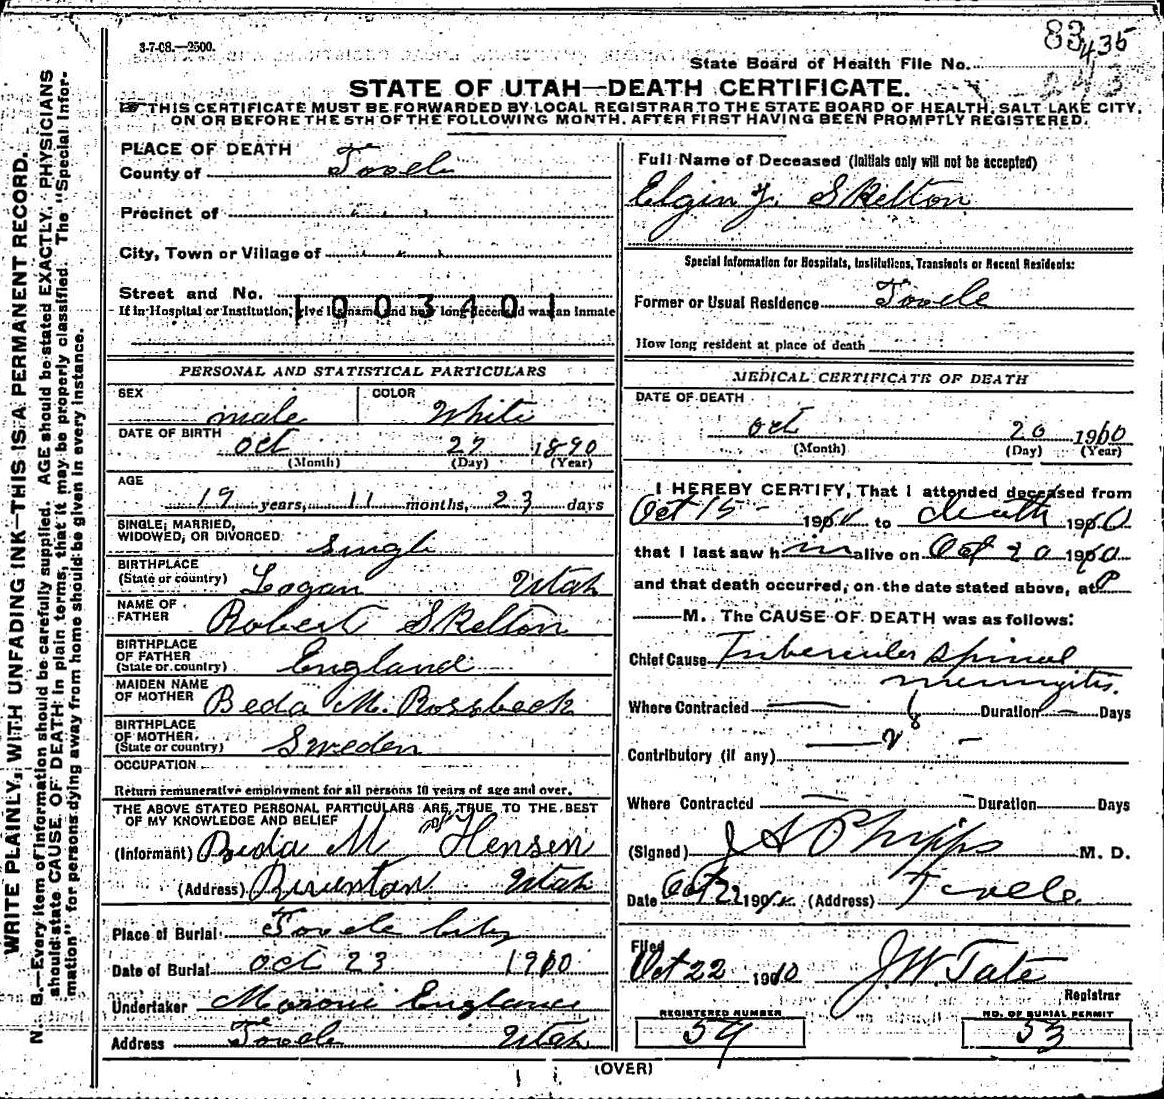 3-7-08.—2500.
83435
State Board of Health File No.
243
STATE OF UTAH—DEATH CERTIFICATE.
THIS CERTIFICATE MUST BE FORWARDED BY LOCAL REGISTRAR TO THE STATE BOARD OF HEALTH, SALT LAKE CITY,
ON OR BEFORE THE 5TH OF THE FOLLOWING MONTH, AFTER FIRST HAVING BEEN PROMPTLY REGISTERED.
WRITE PLAINLY, WITH UNFADING INK—THIS IS A PERMANENT RECORD.
N. B.—Every item of information should be carefully supplied. AGE should be stated EXACTLY. PHYSICIANS
should state CAUSE OF DEATH in plain terms, that it may be properly classified. The "Special Infor-
mation" for persons dying away from home should be given in every instance.
PLACE OF DEATH
County of Tooele
Precinct of " "
City, Town or Village of " "
Street and No.
1003401
If in Hospital or Institution, give its name and how long deceased was an inmate
PERSONAL AND STATISTICAL PARTICULARS
SEX male COLOR White
DATE OF BIRTH Oct 27 1890
(Month) (Day) (Year)
AGE
19 years, 11 months, 23 days
SINGLE, MARRIED,
WIDOWED, OR DIVORCED Single
BIRTHPLACE
(State or country) Logan Utah
NAME OF
FATHER Robert Skelton
BIRTHPLACE
OF FATHER
(State or country) England
MAIDEN NAME
OF MOTHER Beda M. Rossbeck
BIRTHPLACE
OF MOTHER
(State or country) Sweden
OCCUPATION
Return remunerative employment for all persons 10 years of age and over.
THE ABOVE STATED PERSONAL PARTICULARS ARE TRUE TO THE BEST
OF MY KNOWLEDGE AND BELIEF
(Informant) Beda M Hensen
(Address) Riverton Utah
Place of Burial Tooele City
Date of Burial Oct 23 1910
Undertaker Moroni England
Address Tooele Utah
Full Name of Deceased (Initials only will not be accepted)
Elgin Y. Skelton
Special Information for Hospitals, Institutions, Transients or Recent Residents:
Former or Usual Residence Tooele
How long resident at place of death
MEDICAL CERTIFICATE OF DEATH
DATE OF DEATH
Oct 20 1910
(Month) (Day) (Year)
I HEREBY CERTIFY, That I attended deceased from
Oct 15 - 1910 to death 1910
that I last saw him alive on Oct 20 1910
and that death occurred, on the date stated above, at P
M. The CAUSE OF DEATH was as follows:
Chief Cause Tubercular spinal
meningitis.
Where Contracted — Duration — Days
Contributory (if any) —
Where Contracted — Duration Days
(Signed) J A Phipps M. D.
Date Oct 22 1910 (Address) Tooele.
Filed
Oct 22 1910 J. W. Tate
Registrar
REGISTERED NUMBER
59
NO. OF BURIAL PERMIT
53
(OVER)